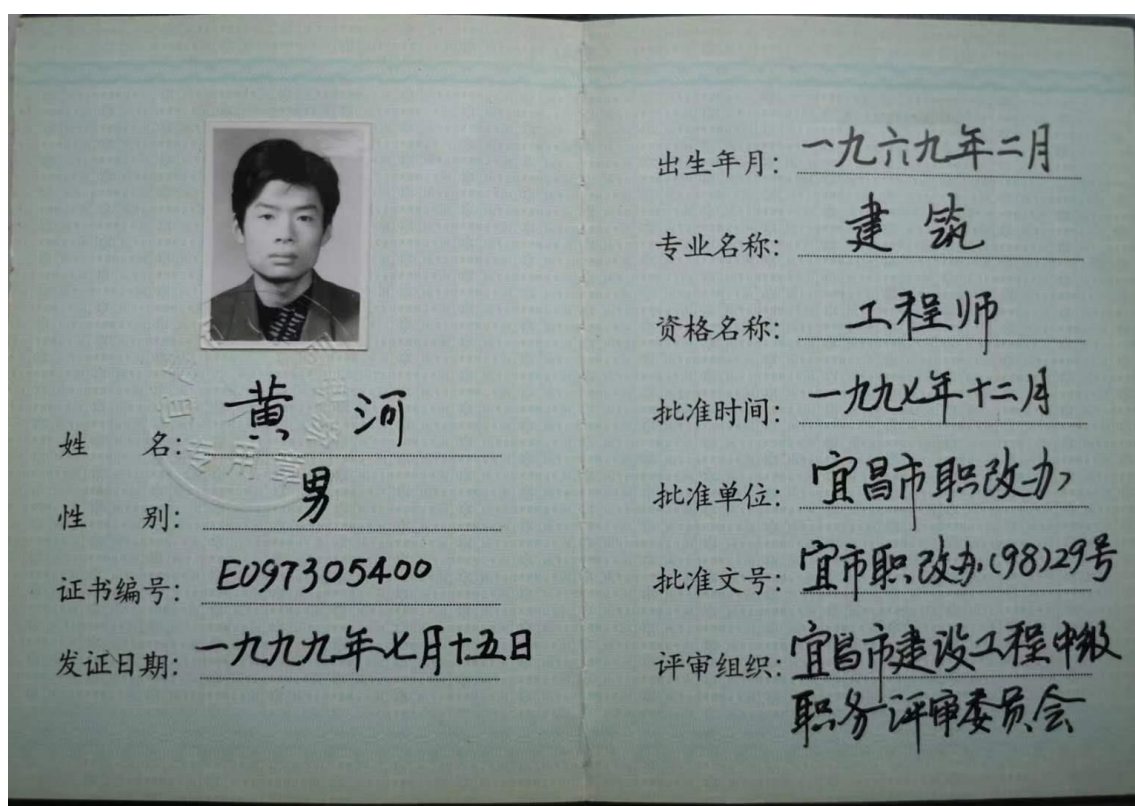 姓 名: 黄河
性 别: 男
证书编号: E097305400
发证日期: 一九九九年七月十五日
专用章
出生年月: 一九六九年二月
专业名称: 建筑
资格名称: 工程师
批准时间: 一九九七年十二月
批准单位: 宜昌市职改办
批准文号: 宜市职改办(98)29号
评审组织: 宜昌市建设工程中级
职务评审委员会